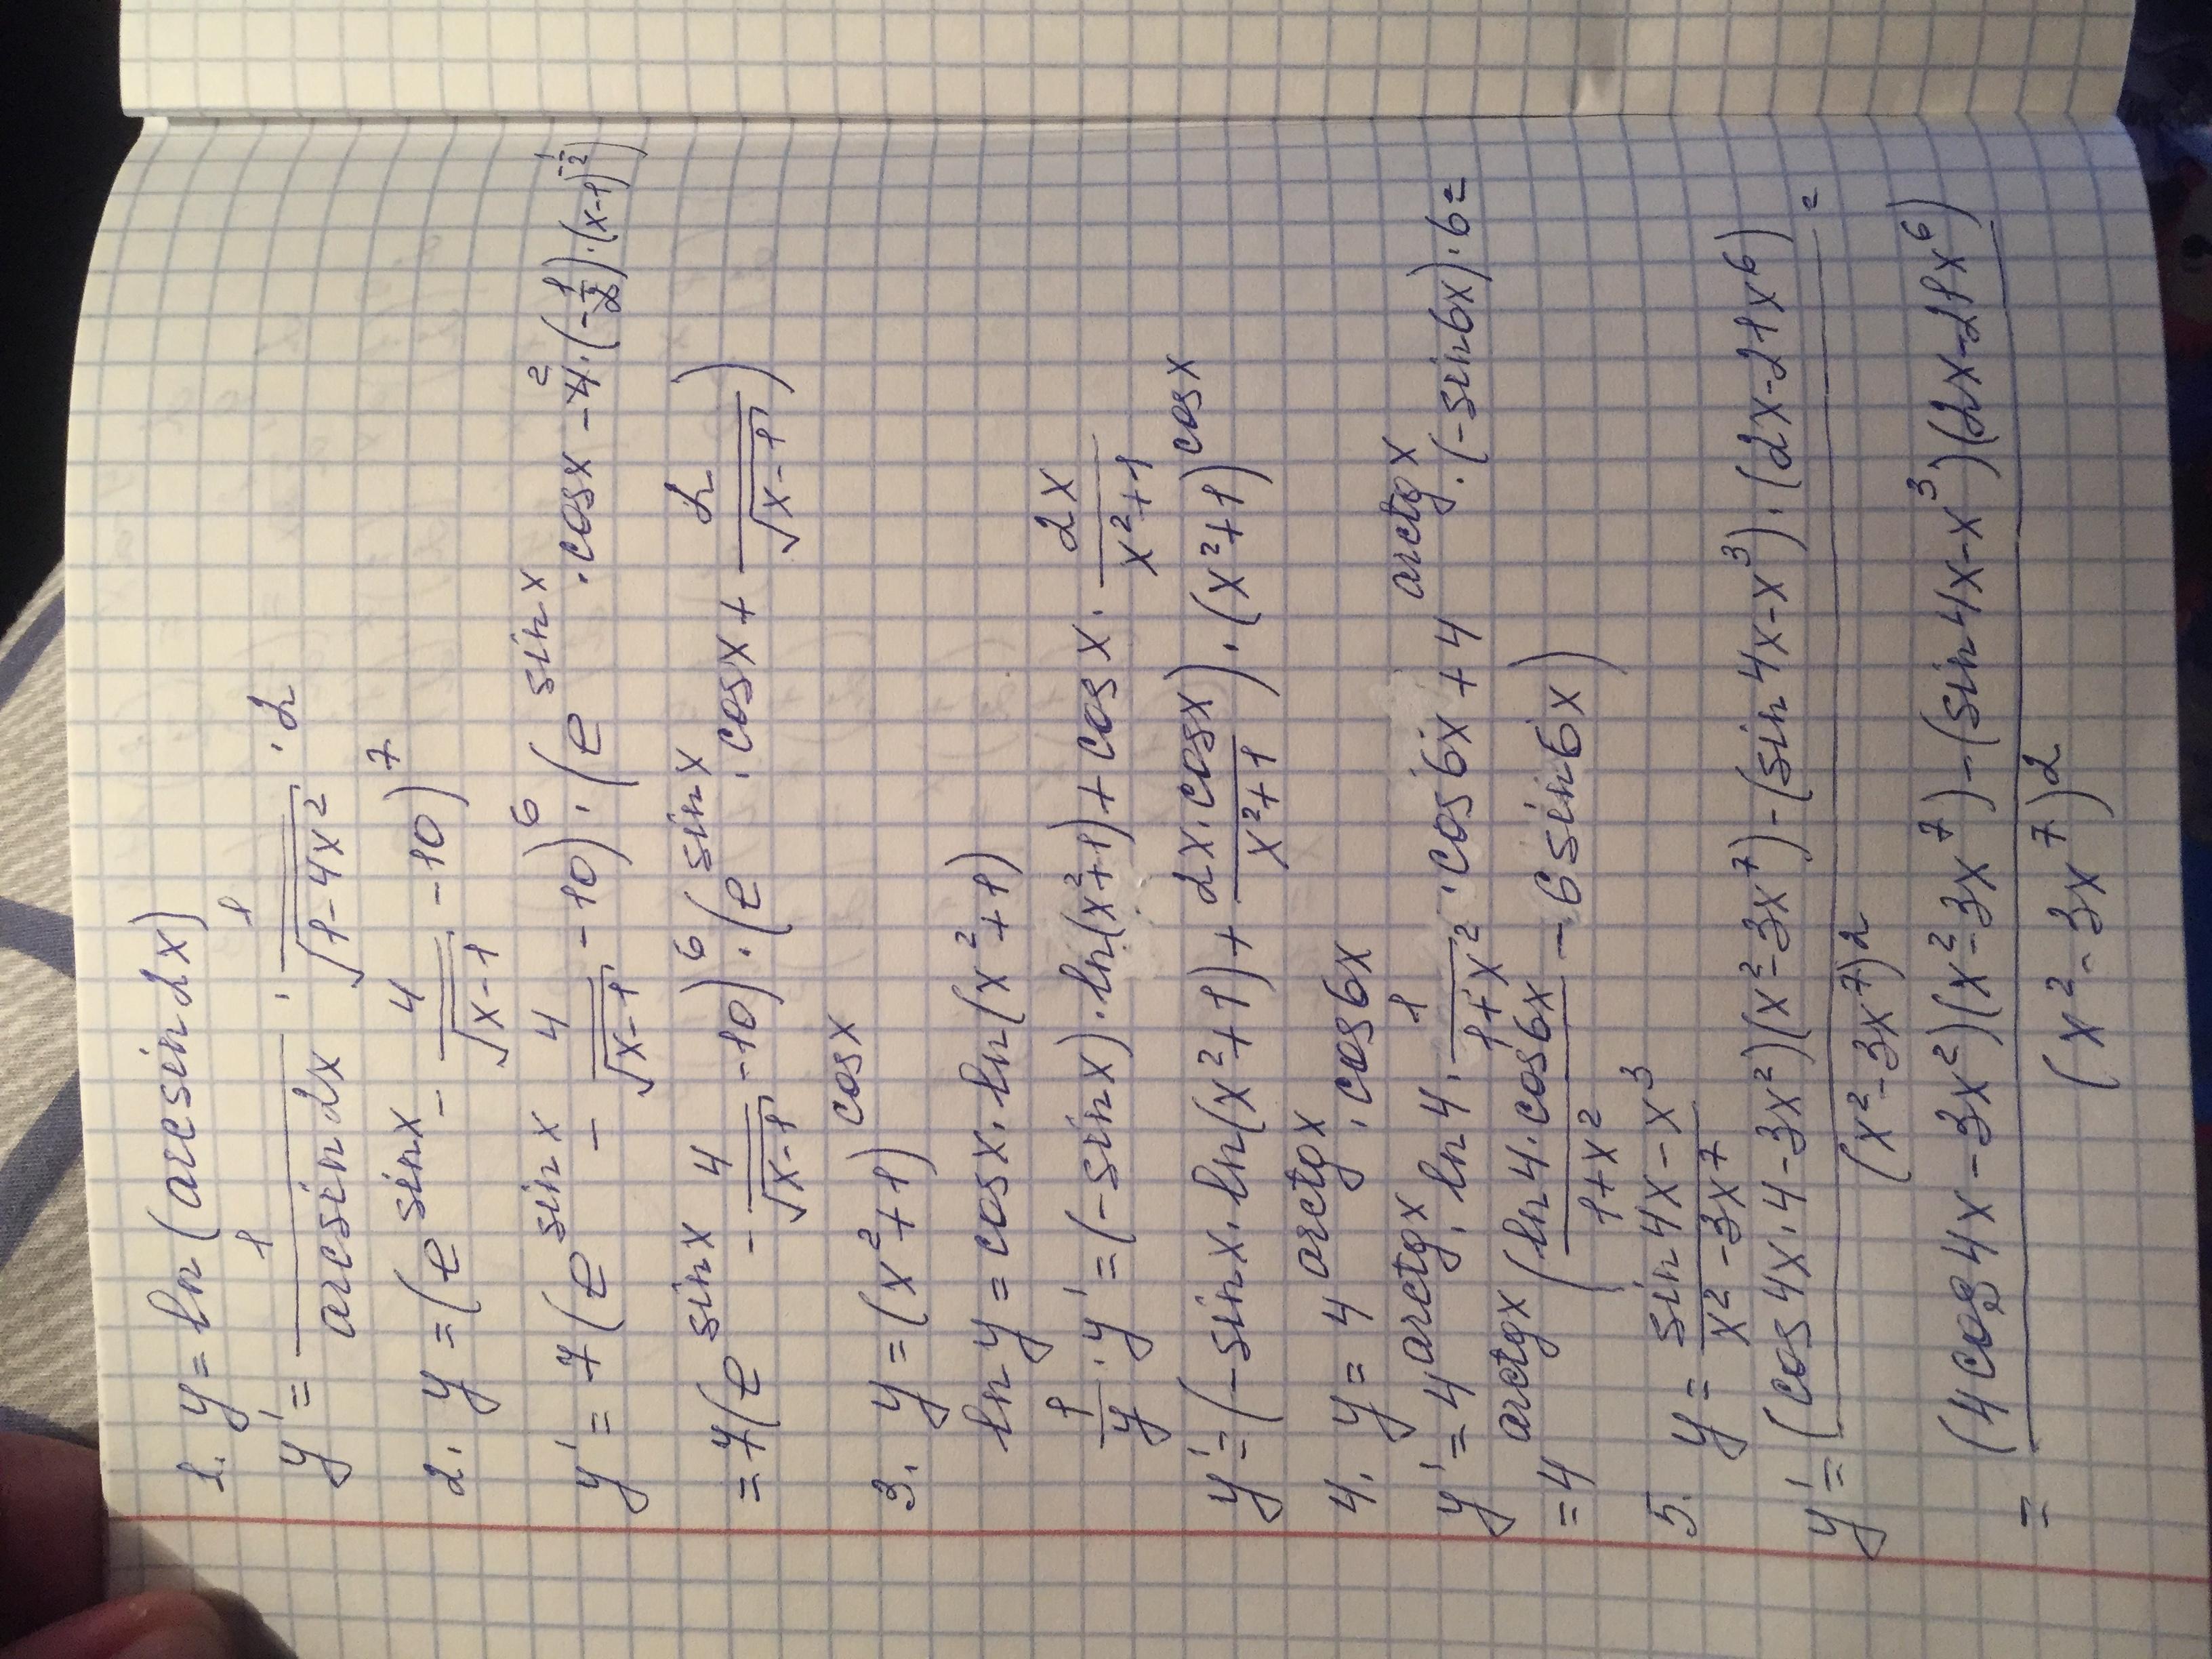 1. y = ln (arcsin 2x)
y' = 1/(arcsin 2x) · 1/√(1-4x²) · 2
2. y = (e^(sin x) - 4/√(x-1) - 10)^7
y' = 7(e^(sin x) - 4/√(x-1) - 10)^6 · (e^(sin x) · cos x - 4 2 · (-1/2) · (x-1)^(-1/2))
= 7(e^(sin x) - 4/√(x-1) - 10)^6 · (e^(sin x) · cos x + 2/√(x-1))
3. y = (x²+1)^(cos x)
ln y = cos x · ln (x²+1)
1/y · y' = (-sin x) · ln(x²+1) + cos x · 2x/(x²+1)
y' = (-sin x · ln(x²+1) + (2x · cos x)/(x²+1)) · (x²+1)^(cos x)
4. y = 4^(arctg x) · cos 6x
y' = 4^(arctg x) · ln 4 · 1/(1+x²) · cos 6x + 4^(arctg x) · (-sin 6x) · 6 =
= 4^(arctg x) ((ln 4 · cos 6x)/(1+x²) - 6 sin 6x)
5. y = (sin 4x - x³)/(x² - 3x^7)
y' = ((cos 4x · 4 - 3x²)(x² - 3x^7) - (sin 4x - x³) · (2x - 21x^6))/(x² - 3x^7)² =
= ((4 cos 4x - 3x²)(x² - 3x^7) - (sin 4x - x³)(2x - 21x^6))/(x² - 3x^7)²